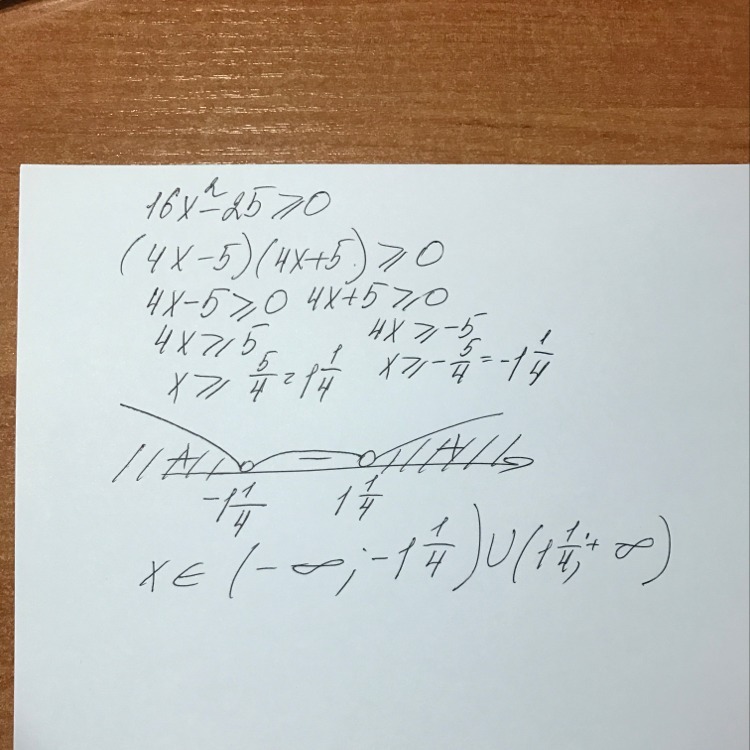 16x²-25⩾0
(4x-5)(4x+5)⩾0
4x-5⩾0 4x+5⩾0
4x⩾5 4x⩾-5
x⩾ 5/4 = 1 1/4 x⩾-5/4=-1 1/4
+ - +
-1 1/4 1 1/4
x∈(-∞;-1 1/4)∪(1 1/4;+∞)